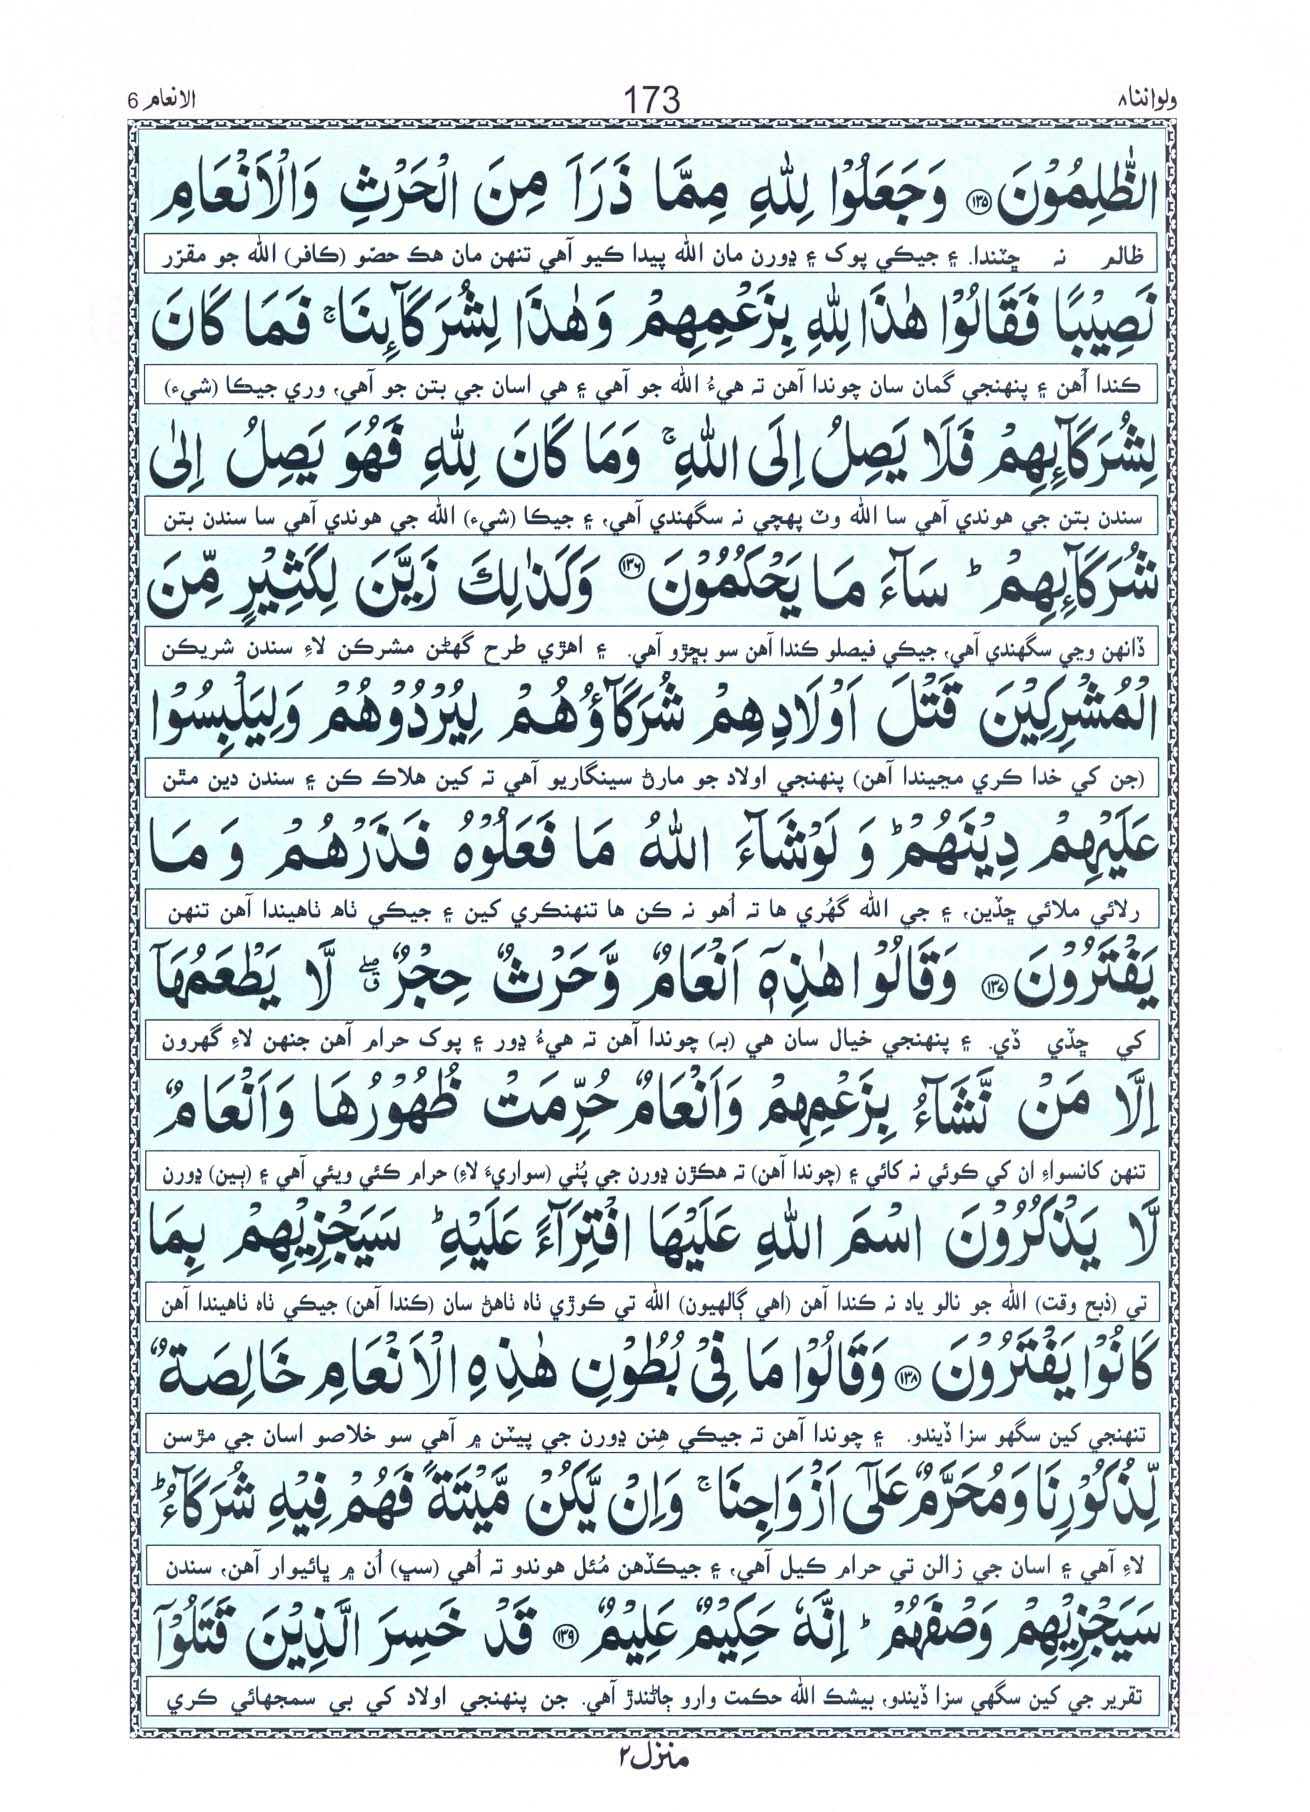 ولواننا ٨
173
الانعام 6
الظّٰلِمُوْنَ ﴿۱۳۵﴾ وَجَعَلُوْا لِلّٰهِ مِمَّا ذَرَاَ مِنَ الْحَرْثِ وَالْاَنْعَامِ
ظالم نہ ڇٽندا. ۽ جيڪي پوک ۽ ڍورن مان الله پيدا ڪيو آهي تنهن مان هڪ حصّو (ڪافر) الله جو مقرّر
نَصِيْبًا فَقَالُوْا هٰذَا لِلّٰهِ بِزَعْمِهِمْ وَهٰذَا لِشُرَكَآىِٕنَا ۚ فَمَا كَانَ
ڪندا آهن ۽ پنهنجي گمان سان چوندا آهن تہ هيءُ الله جو آهي ۽ هي اسان جي بتن جو آهي، وري جيڪا (شيء)
لِشُرَكَآىِٕهِمْ فَلَا يَصِلُ اِلَى اللّٰهِ ۚ وَمَا كَانَ لِلّٰهِ فَهُوَ يَصِلُ اِلٰى
سندن بتن جي هوندي آهي سا الله وٽ پهچي نہ سگهندي آهي، ۽ جيڪا (شيء) الله جي هوندي آهي سا سندن بتن
شُرَكَآىِٕهِمْ ؕ سَآءَ مَا يَحْكُمُوْنَ ﴿۱۳۶﴾ وَكَذٰلِكَ زَيَّنَ لِكَثِيْرٍ مِّنَ
ڏانهن وڃي سگهندي آهي، جيڪي فيصلو ڪندا آهن سو بڇڙو آهي. ۽ اهڙي طرح گهڻن مشرڪن لاءِ سندن شريڪن
الْمُشْرِكِيْنَ قَتْلَ اَوْلَادِهِمْ شُرَكَآؤُهُمْ لِيُرْدُوْهُمْ وَلِيَلْبِسُوْا
(جن کي خدا ڪري مڃيندا آهن) پنهنجي اولاد جو مارڻ سينگاريو آهي تہ کين هلاڪ ڪن ۽ سندن دين مٿن
عَلَيْهِمْ دِيْنَهُمْ ؕ وَ لَوْشَآءَ اللّٰهُ مَا فَعَلُوْهُ فَذَرْهُمْ وَ مَا
رلائي ملائي ڇڏين، ۽ جي الله گهُري ها تہ اُهو نہ ڪن ها تنهنڪري کين ۽ جيڪي ٺاھ ٺاهيندا آهن تنهن
يَفْتَرُوْنَ ﴿۱۳۷﴾ وَقَالُوْا هٰذِهٖۤ اَنْعَامٌ وَّحَرْثٌ حِجْرٌ ۖق لَّا يَطْعَمُهَاۤ
کي ڇڏي ڏي. ۽ پنهنجي خيال سان هي (بہ) چوندا آهن تہ هيءُ ڍور ۽ پوک حرام آهن جنهن لاءِ گهرون
اِلَّا مَنْ نَّشَآءُ بِزَعْمِهِمْ وَاَنْعَامٌ حُرِّمَتْ ظُهُوْرُهَا وَاَنْعَامٌ
تنهن کانسواءِ ان کي ڪوئي نہ کائي ۽ (چوندا آهن) تہ هڪڙن ڍورن جي پُٺي (سواريءَ لاءِ) حرام ڪئي ويئي آهي ۽ (ٻين) ڍورن
لَّا يَذْكُرُوْنَ اسْمَ اللّٰهِ عَلَيْهَا افْتِرَآءً عَلَيْهِ ؕ سَيَجْزِيْهِمْ بِمَا
تي (ذبح وقت) الله جو نالو ياد نہ ڪندا آهن (اهي ڳالهيون) الله تي ڪوڙي ٺاھ ٺاهڻ سان (ڪندا آهن) جيڪي ٺاھ ٺاهيندا آهن
كَانُوْا يَفْتَرُوْنَ ﴿۱۳۸﴾ وَقَالُوْا مَا فِيْ بُطُوْنِ هٰذِهِ الْاَنْعَامِ خَالِصَةٌ
تنهنجي کين سگهو سزا ڏيندو. ۽ چوندا آهن تہ جيڪي هِنن ڍورن جي پيٽن ۾ آهي سو خلاصو اسان جي مڙسن
لِّذُكُوْرِنَا وَمُحَرَّمٌ عَلٰۤى اَزْوَاجِنَا ۚ وَاِنْ يَّكُنْ مَّيْتَةً فَهُمْ فِيْهِ شُرَكَآءُ ؕ
لاءِ آهي ۽ اسان جي زالن تي حرام ڪيل آهي، ۽ جيڪڏهن مُئل هوندو تہ اُهي (سڀ) اُن ۾ ڀائيوار آهن، سندن
سَيَجْزِيْهِمْ وَصْفَهُمْ ؕ اِنَّهٗ حَكِيْمٌ عَلِيْمٌ ﴿۱۳۹﴾ قَدْ خَسِرَ الَّذِيْنَ قَتَلُوْۤا
تقرير جي کين سگهي سزا ڏيندو، بيشڪ الله حڪمت وارو ڄاڻندڙ آهي. جن پنهنجي اولاد کي بي سمجهائي ڪري
منزل ٢